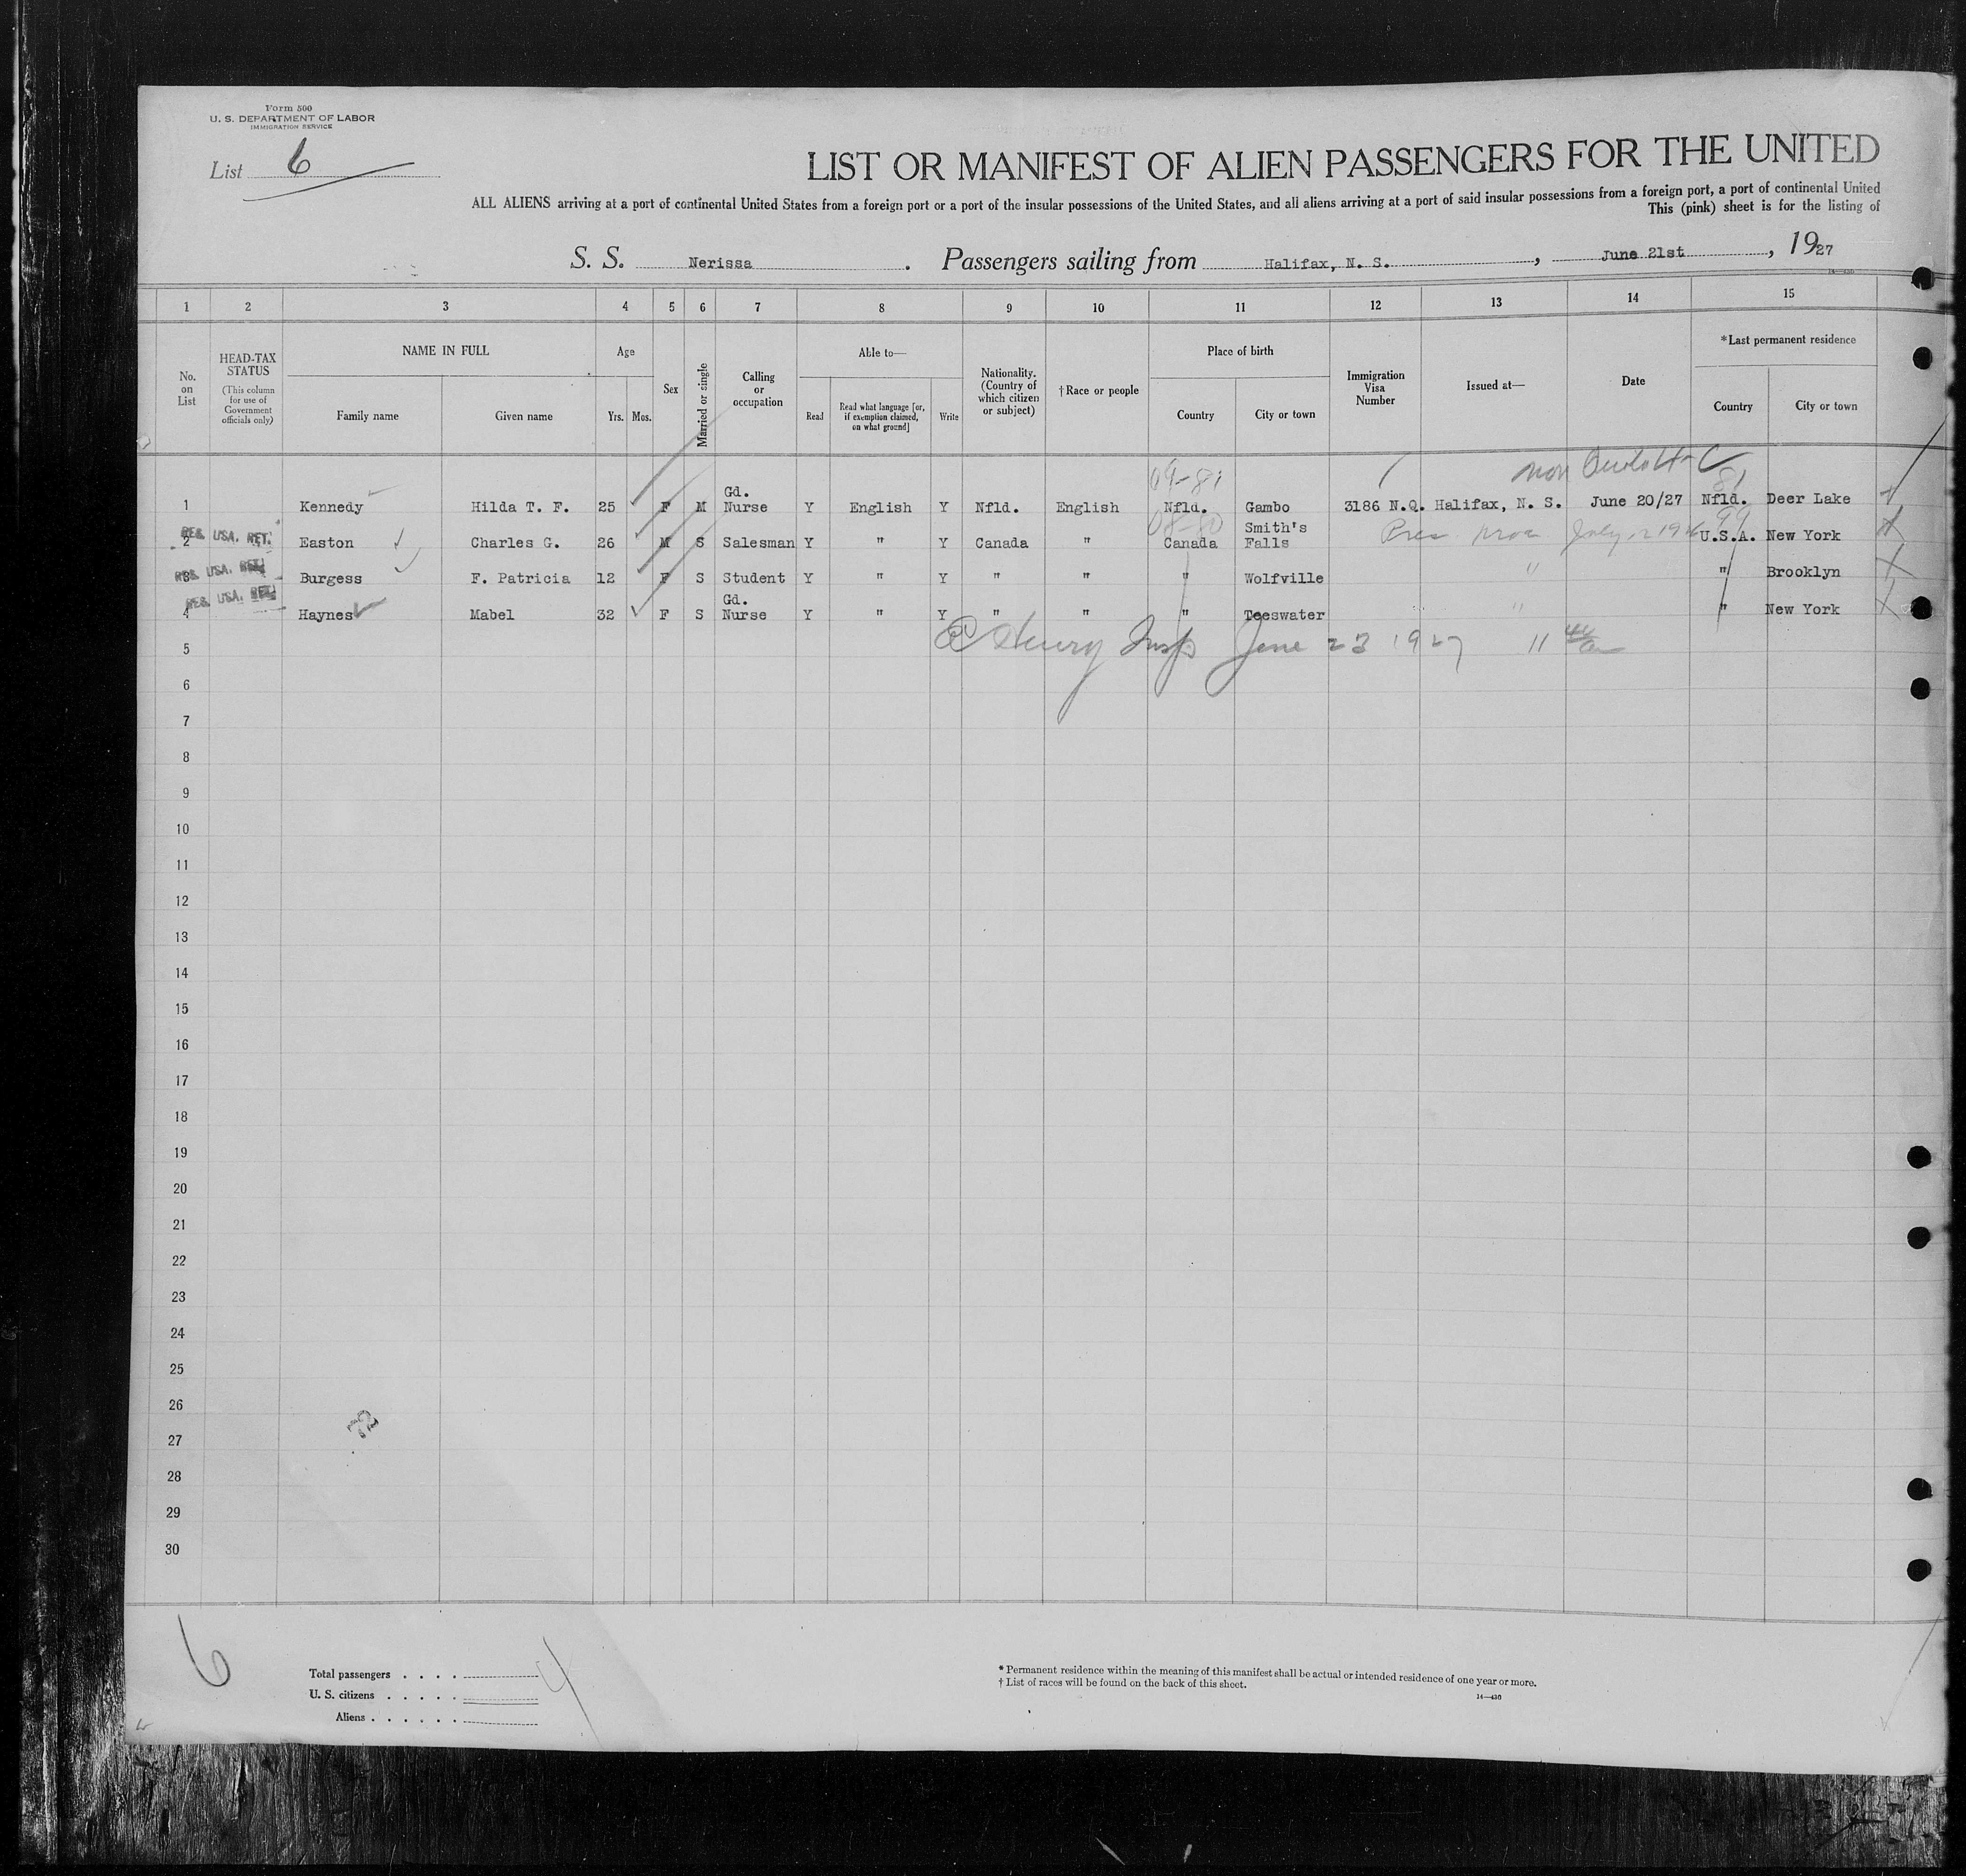 Form 500
U. S. DEPARTMENT OF LABOR
IMMIGRATION SERVICE
List 6
LIST OR MANIFEST OF ALIEN PASSENGERS FOR THE UNITED
ALL ALIENS arriving at a port of continental United States from a foreign port or a port of the insular possessions of the United States, and all aliens arriving at a port of said insular possessions from a foreign port, a port of continental United
This (pink) sheet is for the listing of
S. S. Nerissa . Passengers sailing from Halifax, N. S. , June 21st , 1927
14—430
1 2 3 4 5 6 7 8 9 10 11 12 13 14 15
No. on List
HEAD-TAX STATUS
(This column for use of Government officials only)
NAME IN FULL
Family name
Given name
Age
Yrs. Mos.
Sex
Married or single
Calling or occupation
Able to—
Read
Read what language [or, if exemption claimed, on what ground]
Write
Nationality. (Country of which citizen or subject)
†Race or people
Place of birth
Country
City or town
Immigration Visa Number
Issued at—
Date
*Last permanent residence
Country
City or town
non Quota 4-C
04-81 81
1 Kennedy Hilda T. F. 25 F M Gd. Nurse Y English Y Nfld. English Nfld. Gambo 3186 N.Q. Halifax, N. S. June 20/27 Nfld. Deer Lake
08-80 99
RES. USA. RET.
2 Easton Charles G. 26 M S Salesman Y " Y Canada " Canada Smith's Falls July 1 U.S.A. New York
RES. USA. RET.
3 Burgess F. Patricia 12 F S Student Y " Y " " " Wolfville " " Brooklyn
RES. USA. RET.
4 Haynes Mabel 32 F S Gd. Nurse Y " Y " " " Teeswater " " New York
5 Henry Insp June 23 1927 11
6
7
8
9
10
11
12
13
14
15
16
17
18
19
20
21
22
23
24
25
26
27
28
29
30
6
Total passengers . . . .
U. S. citizens . . . . .
Aliens . . . . . .
4
* Permanent residence within the meaning of this manifest shall be actual or intended residence of one year or more.
† List of races will be found on the back of this sheet.
14—430